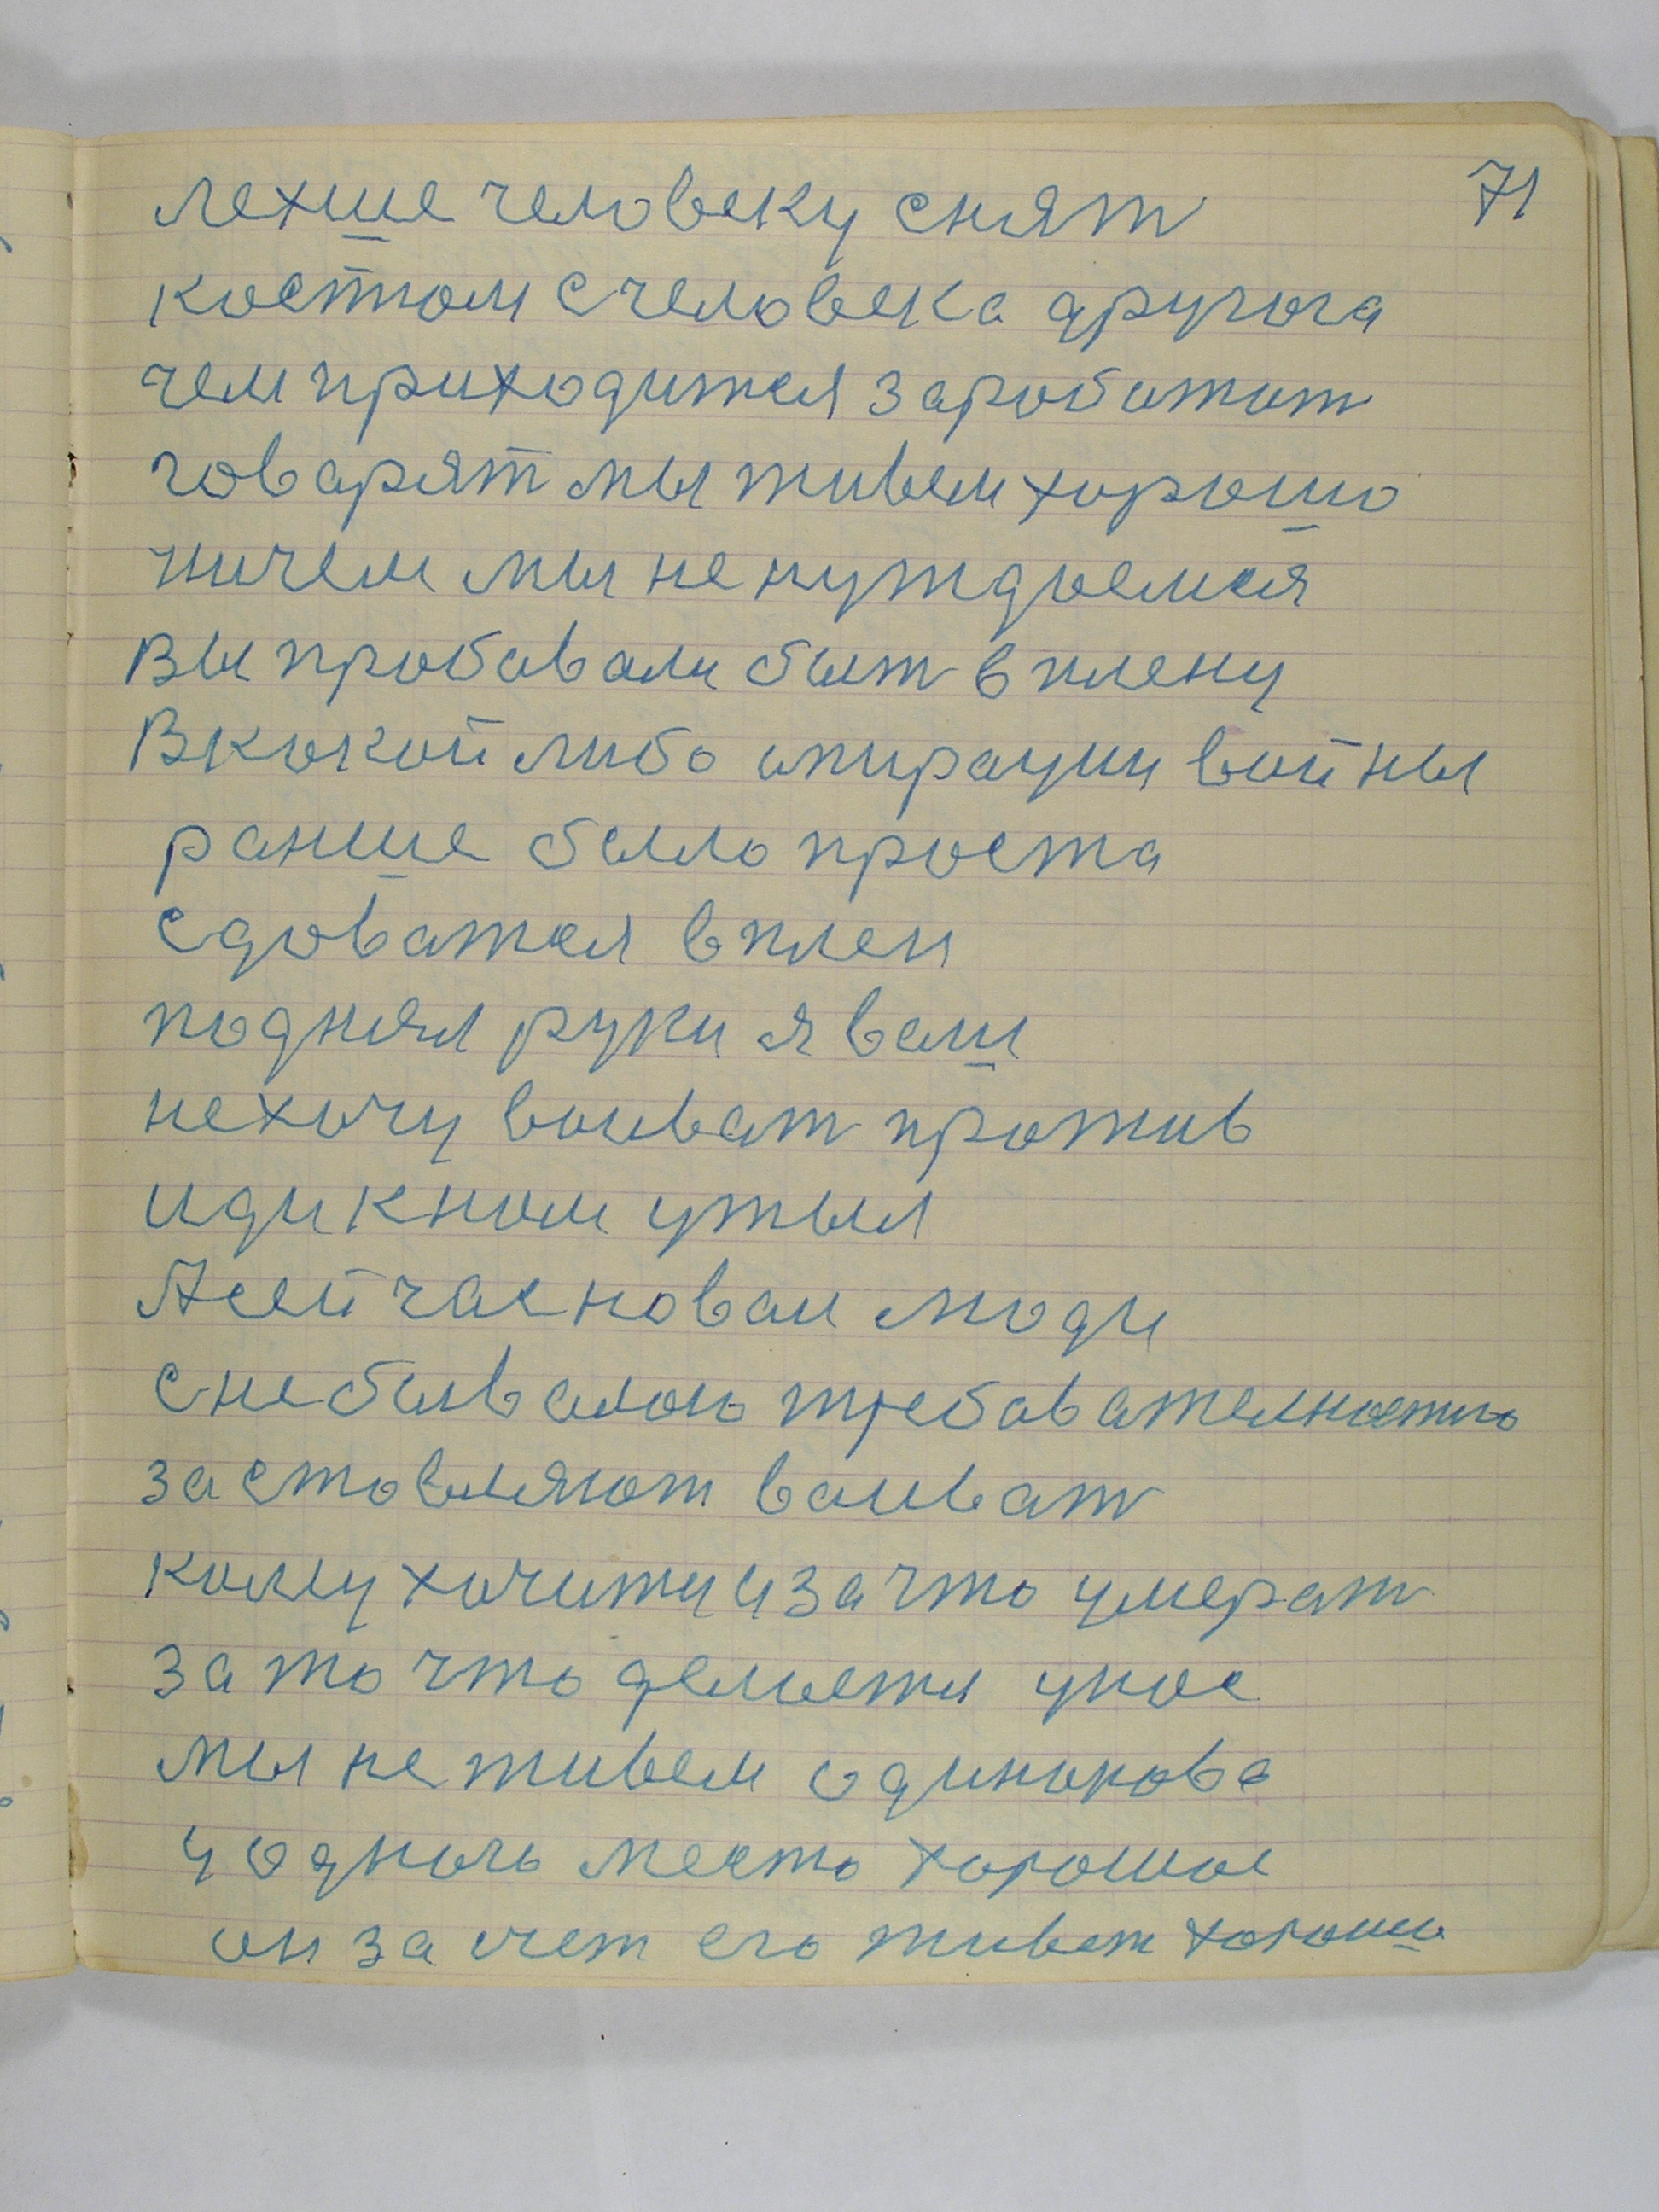 71
лехше человеку снят
костюм с человека другога
чем приходится заработат
говарят мы живем хорошо
ничем мы не нуждаемся
Вы пробавали быт в плену
В какой либо опирации войны
ранше было проста
сдаватся в плен
поднял руки я ваш
не хочу воиват против
иди к ном утыл
А сейчас новаи люди
с небывалою требавателностю
заставляют воиват
кому хочитца за что умерат
за то что делается у нас
мы не живем одинакова
у одного место хорошое
он за счет его живет хорошо